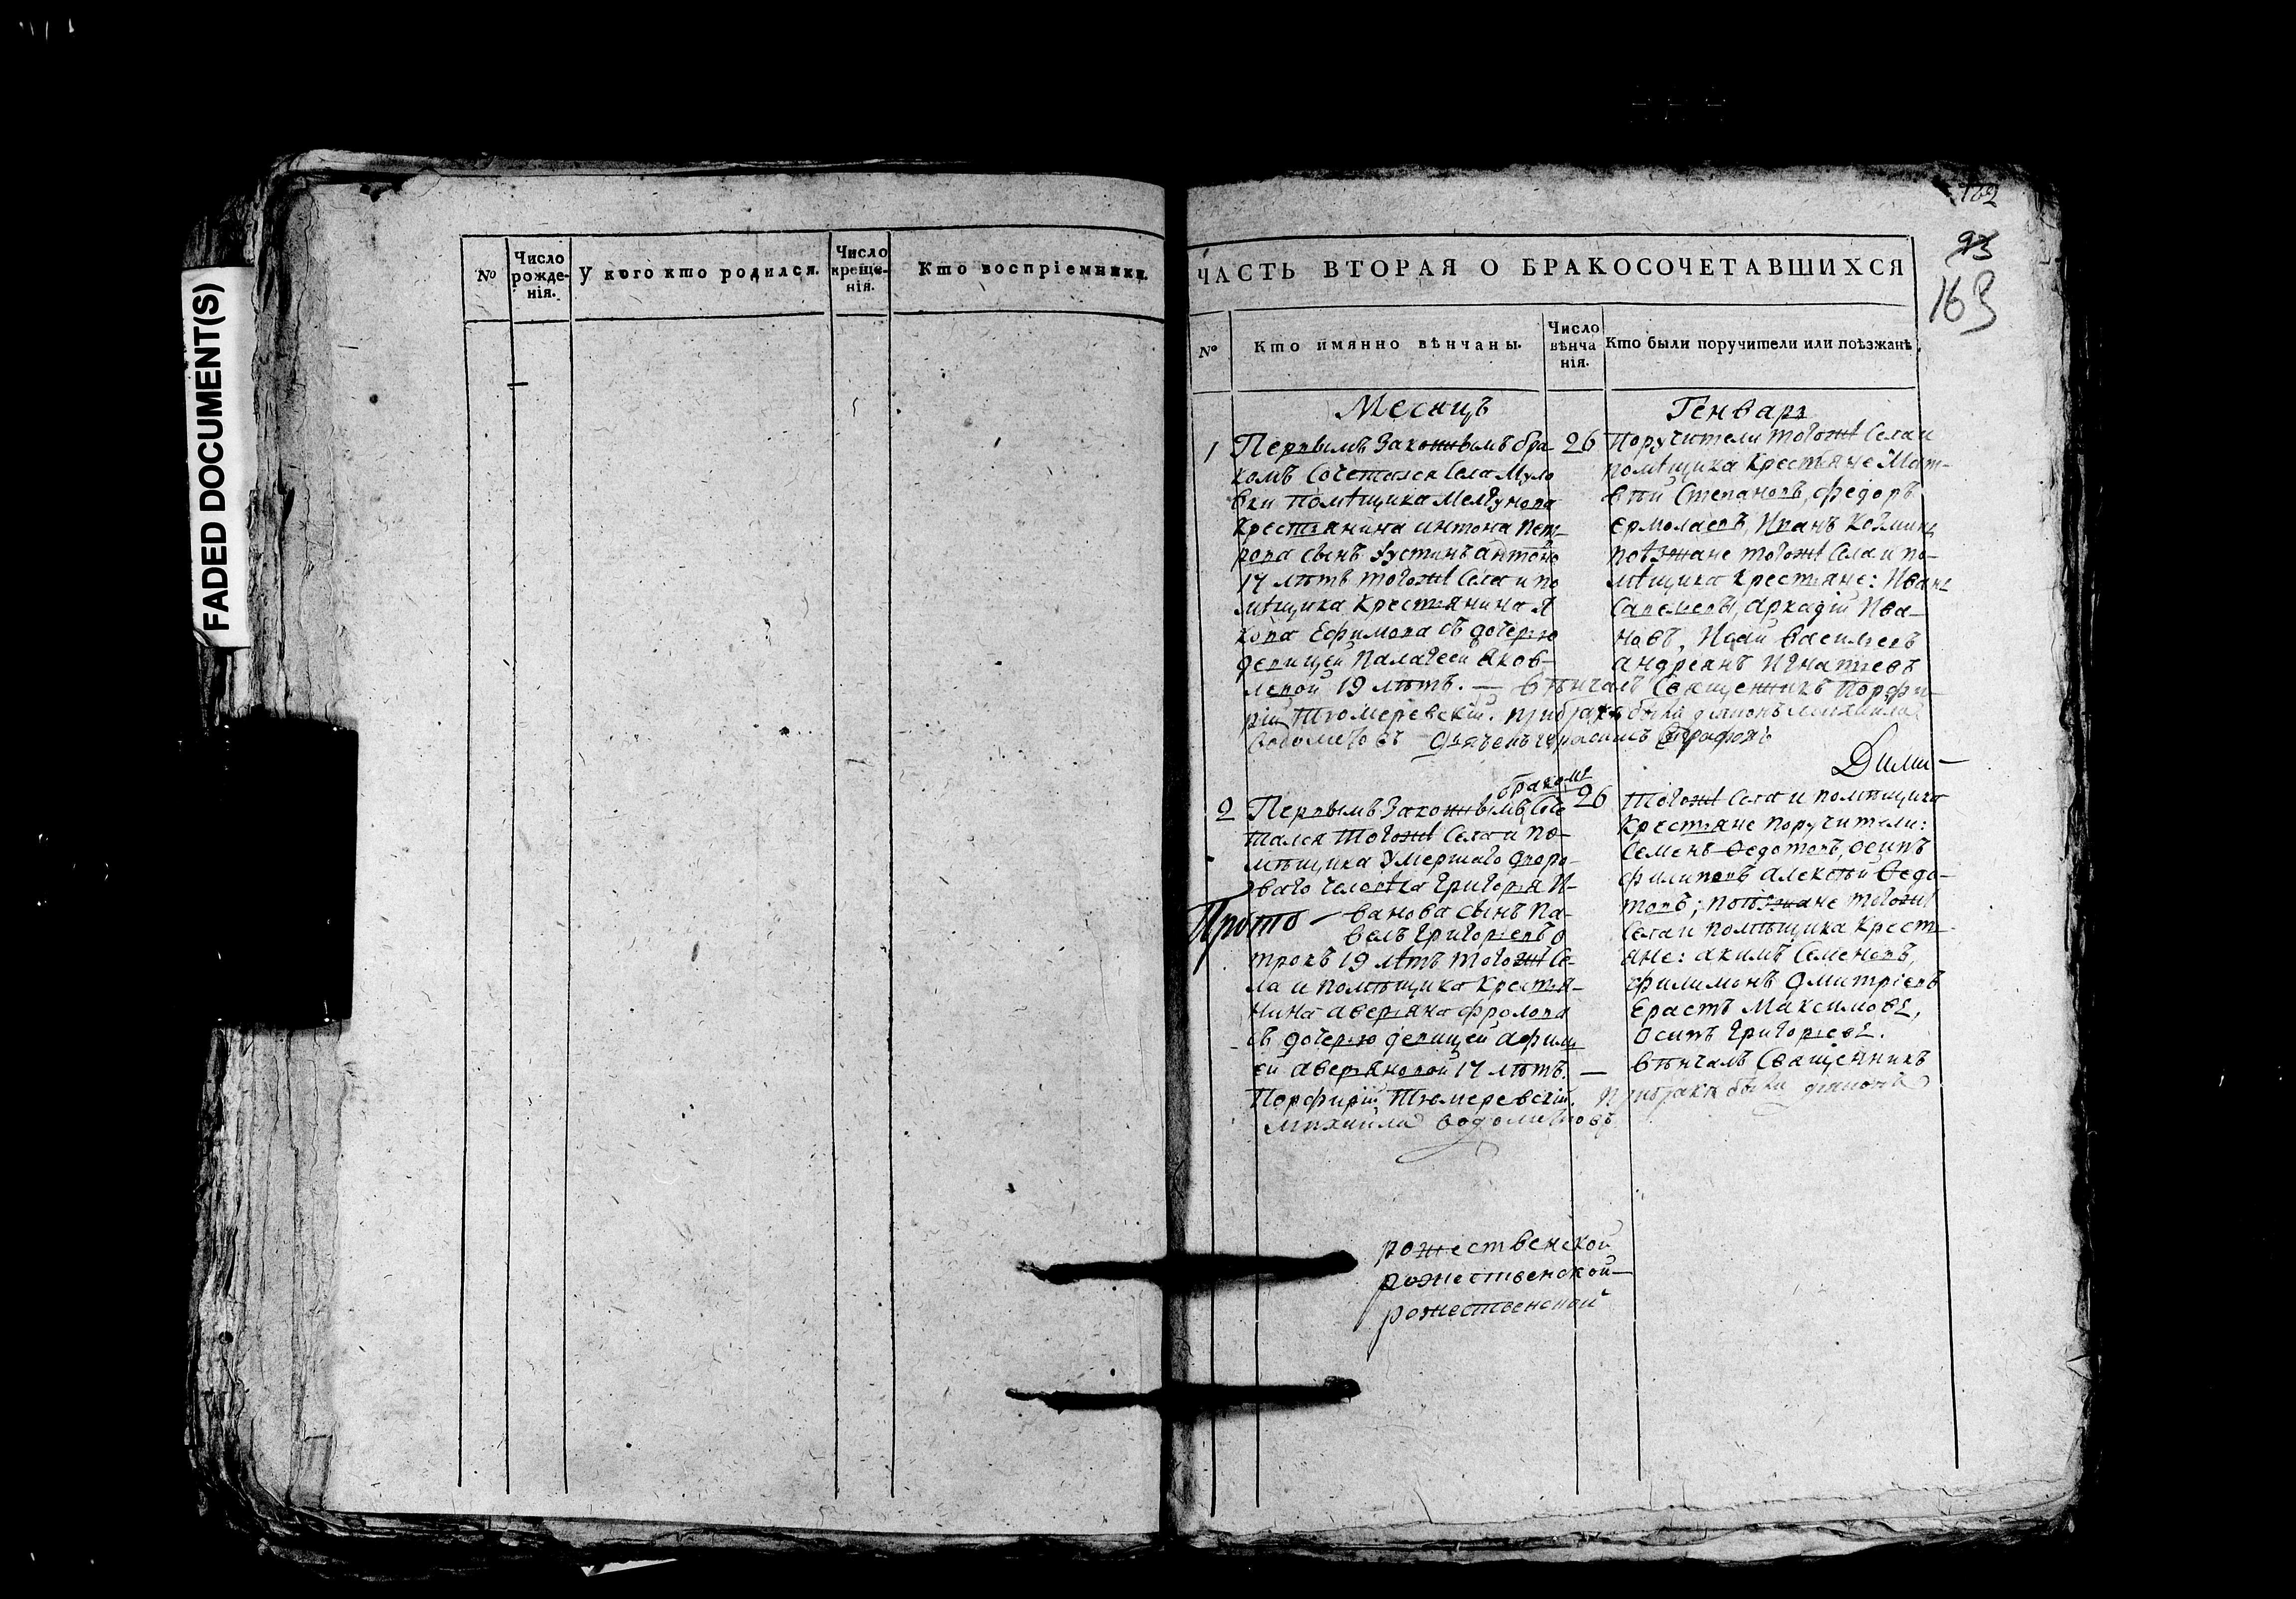 FADED DOCUMENT(S)
№
Число рожденія.
У кого кто родился.
Число крещенія.
Кто воспріемники.
162
93
163
ЧАСТЬ ВТОРАЯ О БРАКОСОЧЕТАВШИХСЯ
№
Кто имянно вѣнчаны.
Число вѣнча нія.
Кто были поручители или поѣзжанѣ
Месяцъ Генварь
1
Первымъ Законнымъ бра
комъ Сочетался Села Муло
вки помѣщика Мелгунова
Крестьянина антона пет-
рова сынъ Устинъ антоно
17 лѣтъ тогожѣ Села и по
мѣщика Крестьянина Я
кова Ефимова съ дочерью
девицей Палагеей Яков-
левой 19 лѣтъ. — вѣнчалъ Священникъ Порфи-
рій Тюмеревскій. при бракѣ были діяконъ михаила
26
Поручители тогожѣ Села и
помѣщика Крестьяне Мат-
вѣй Степановъ, федоръ
ермолаевъ, Иванъ Козминъ
поѣзжане тогожѣ Села и по-
мѣщика Крестьяне: Иванъ
Савельевъ, аркадій Ива-
новъ, Исай Васильевъ
андреянъ Игнатьевъ
Дими-
2
бракомъ
Первымъ Законнымъ Соче
тался тогожѣ Села и по-
мѣщика Умершаго дворо-
ваго человѣка григорья И-
Прото - ванова сынъ Па-
велъ григорьевъ о
трокъ 19 лѣтъ тогожѣ Се-
ла и помѣщика Крестья-
нина аверьяна фролова
съ дочерью девицей афими
ей аверьяновой 17 лѣтъ. —
Порфирій Тюмеревскій. При бракѣ были діяконъ
михаила
26
тогожѣ Села и помѣщика
Крестьяне поручители:
Семенъ Ѳедотовъ, осипъ
филиповъ алексѣй Ѳедо-
товъ; поѣзжане тогожѣ
Села и помѣщика Кресть-
яне: акимъ Семеновъ,
филимонъ Дмитріевъ
Ерастъ Максимовъ,
Осипъ григорьевъ.
вѣнчалъ Священникъ
рожественской
рожественской
рожественской